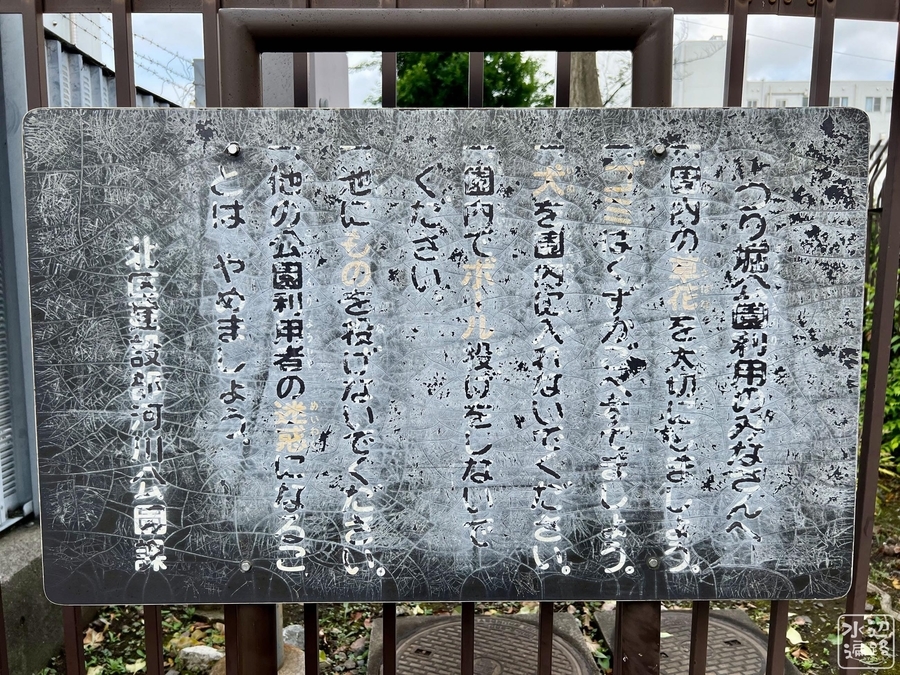 つり堀公園利用の外なさんへ
一、園内の草花を大切にしましょう。
一、ゴミはくずかごへすてましょう。
一、犬を園内に入れないでください。
一、園内でボール投げをしないで
ください
一、池にものを投げないでください。
一、他の公園利用者の迷惑になるこ
とは やめましょう。
北区建設部河川公園課
水辺遍路